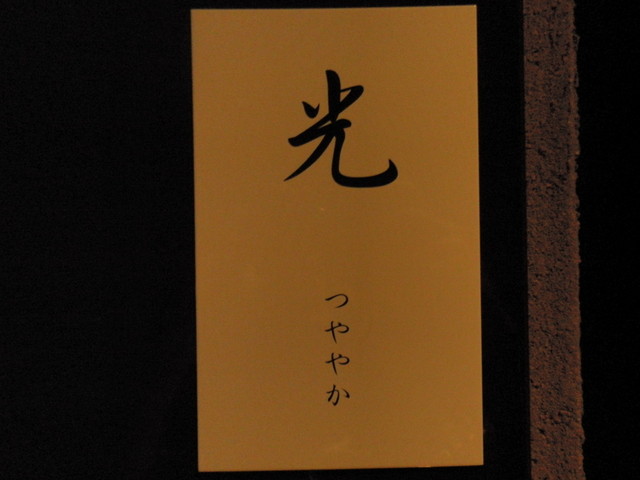 光
つややか